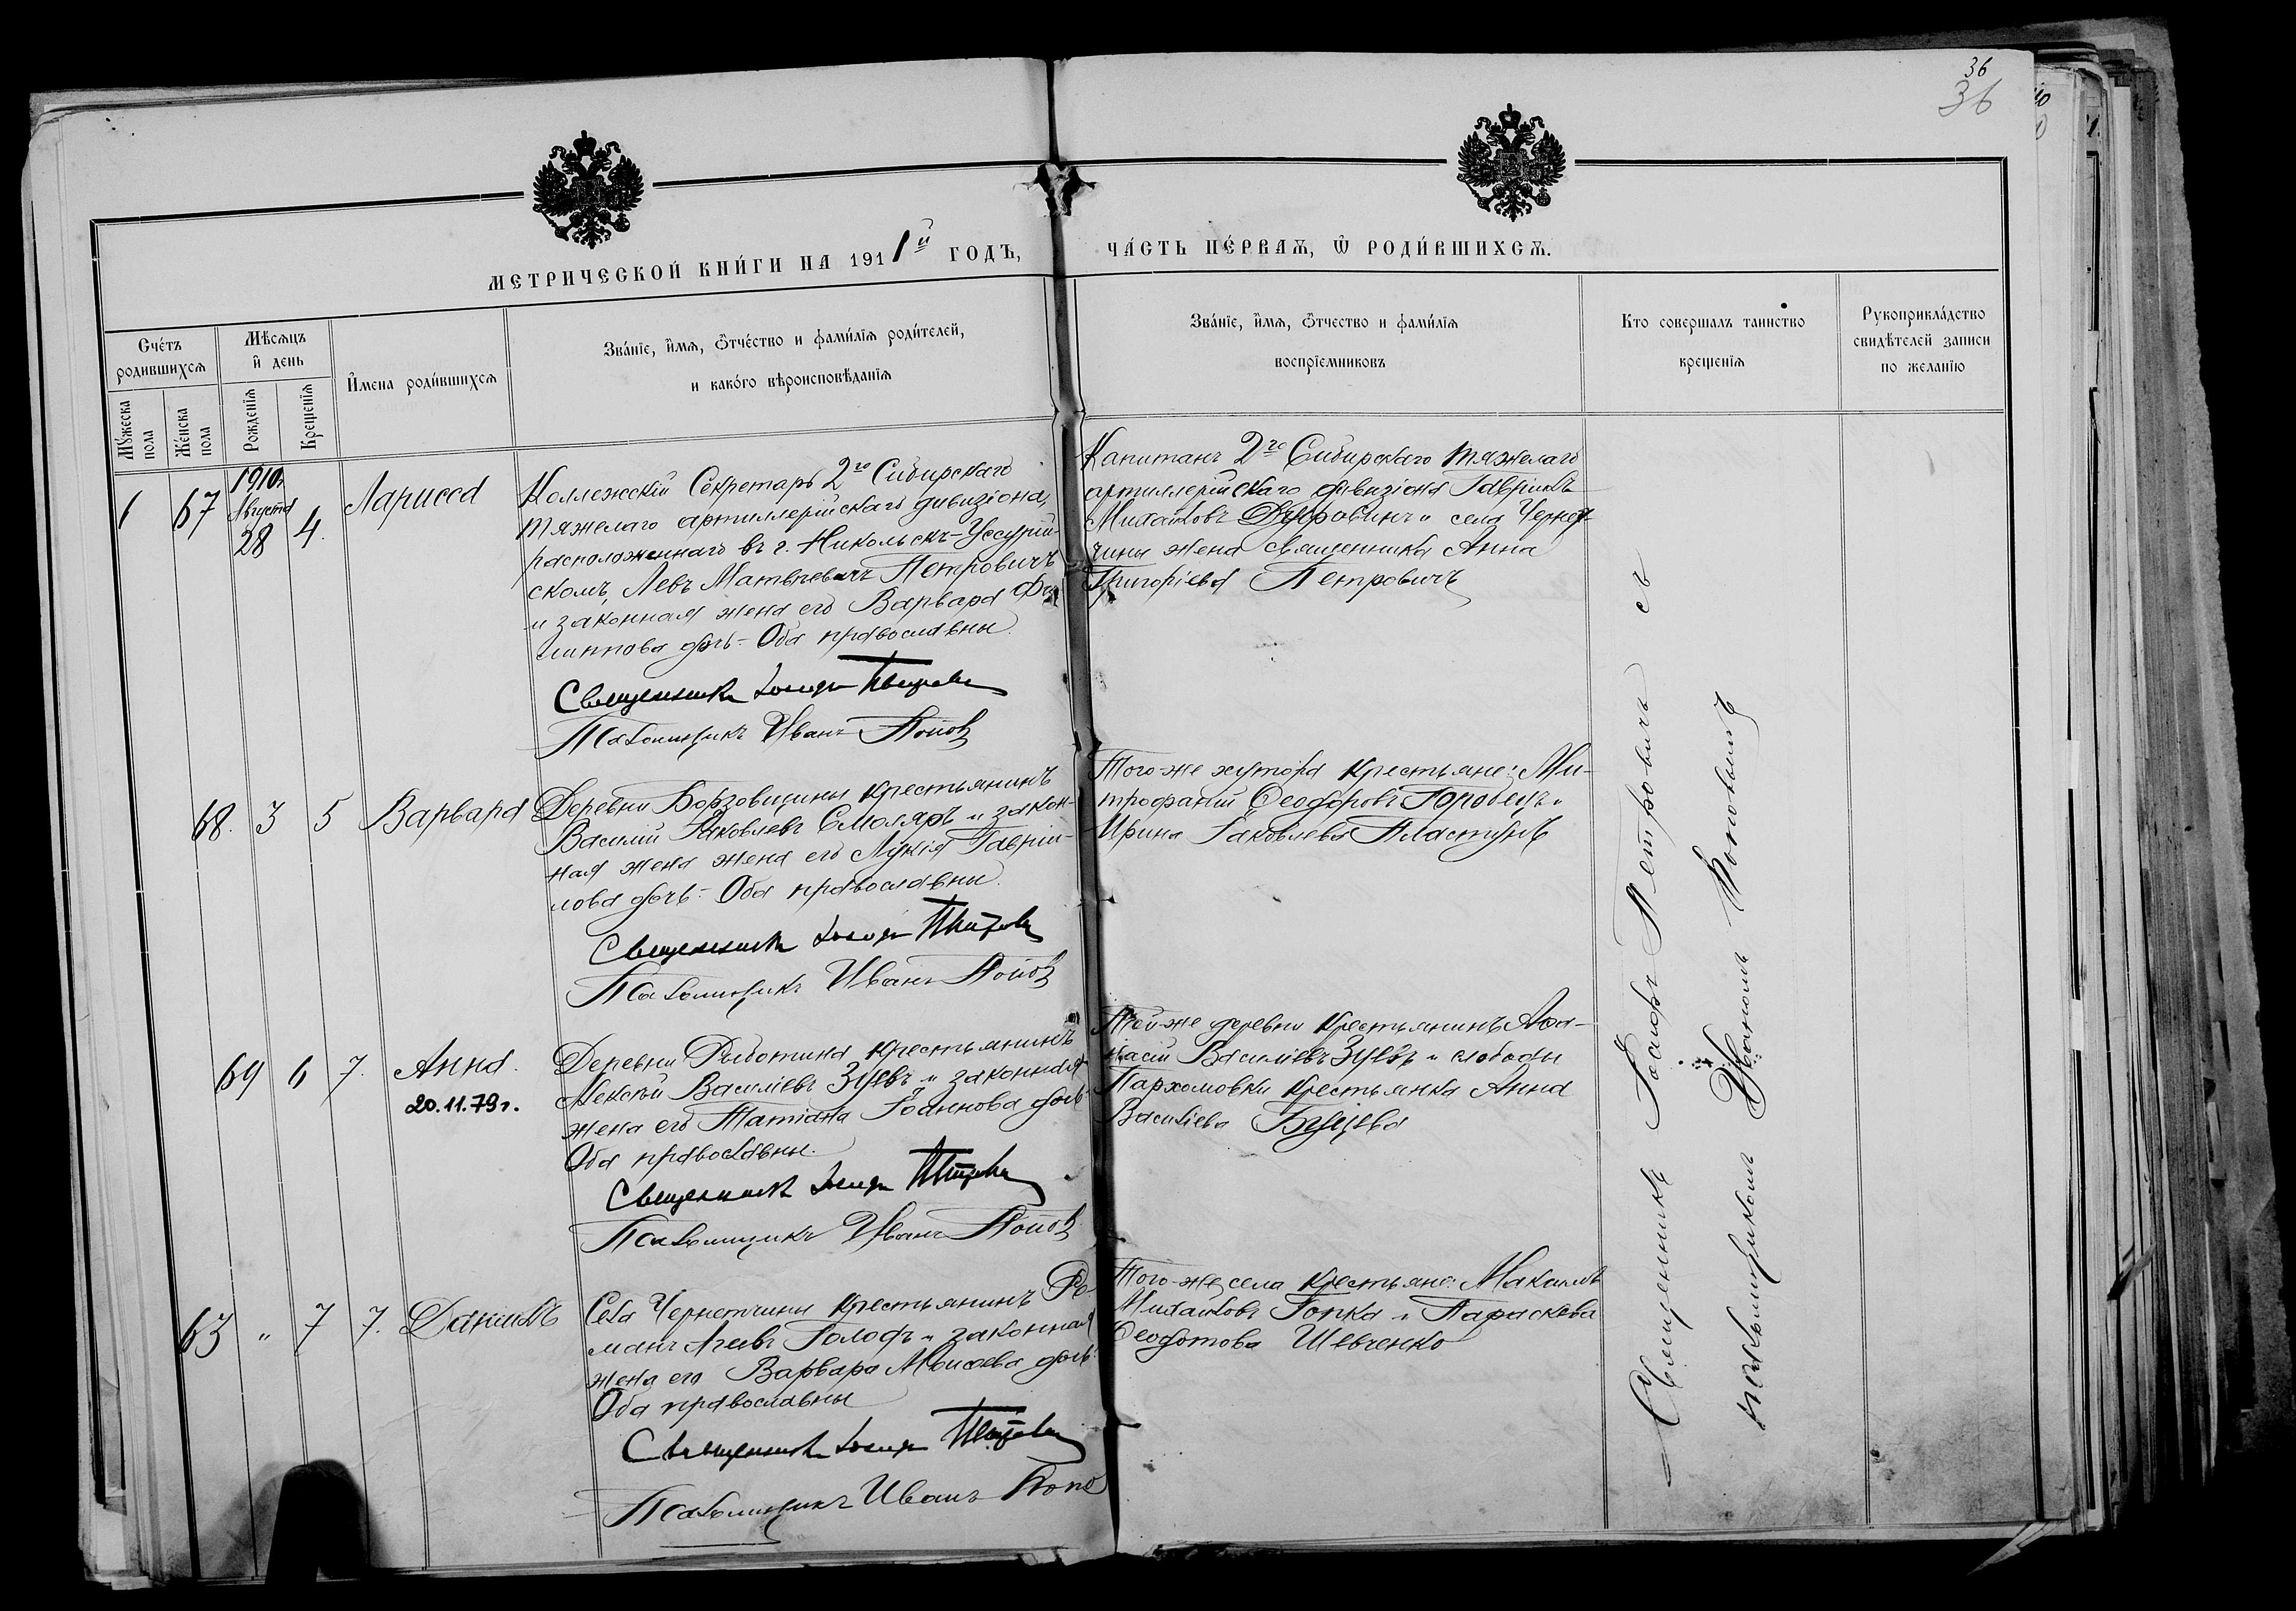 36
36
МЕТРИЧЕСКОЙ КНИ́ГИ НА 1911й ГОДЪ,
ЧА́СТЬ ПЕ́РВАѦ, Ѽ РОДИ́ВШИХСѦ.
Сче́тъ
родившихсѧ
Мꙋ́жеска пола
Же́нска пола
Мѣ́сѧцъ
и҆ день
Рожде́нїѧ
Креще́нїѧ
И҆мена роди́вшихсѧ
Зва́нїе, и҆́мѧ, ѻ҆́тчество и фами́лїѧ роди́телей,
и како́го вѣроисповѣ́данїѧ
Зва́нїе, и҆́мѧ, ѻ҆́тчество и фами́лїѧ
воспрїемниковъ
Кто соверша́лъ таинство
креще́нїѧ
Рукоприкла́дство
свидѣ́телей записи
по жела́нїю
1
67
1910г.
Августа
28
4.
Ларисса
Коллежскій Секретарь 2го Сибирскаго
тяжелаго артиллерійскаго дивизіона,
расположеннаго въ г. Никольскъ-Уссурій-
скомъ, Левъ Матвѣевичъ Петровичъ
и законная жена его Варвара Фи-
липпова дочь. Оба православны.
Священникъ Іосифъ Петровичъ
Псаломщикъ Иванъ Поповъ
Капитанъ 2го Сибирскаго тяжелаго
артиллерійскаго дивизіона Гавріилъ
Михаиловъ и села Чернет-
чины жена священника Анна
Григоріева Петровичъ
68.
3
5
Варвара
Деревни Борзовщины крестьянинъ
Василій Іаковлевъ Смоляръ и закон-
ная жена жена его Лукія Гавріи-
лова дочь. Оба православны.
Священникъ Іосифъ Петровичъ
Псаломщикъ Иванъ Поповъ
Того-же хутора крестьяне: Ми-
трофаній Ѳеодоровъ Городецъ и
Ирина Іаковлева Пластунъ
69
6
7.
Анна.
20.11.79г.
Деревни Рыботина крестьянинъ
Алексѣй Василіевъ Зуевъ и законная
жена его Татіана Іоаннова дочь
Оба православны.
Священникъ Іосифъ Петровичъ
Псаломщикъ Иванъ Поповъ
Той-же деревни крестьянинъ Аѳа-
насій Василіевъ Зуевъ и слободы
Пархомовки крестьянка Анна
Василіева
63
"
7
7.
Даніилъ
Села Чернетчины крестьянинъ Ро-
манъ Агеевъ Голофъ и законная
жена его Варвара Моисеева дочь.
Оба православны
Священникъ Іосифъ Петровичъ
Псаломщикъ Иванъ Попо
Того-же села крестьяне: Макаилъ
Михаиловъ Гопка и Параскева
Ѳеодотова Шевченко
Священникъ Іосифъ Петровичъ съ
псаломщикомъ Иваномъ Поповымъ